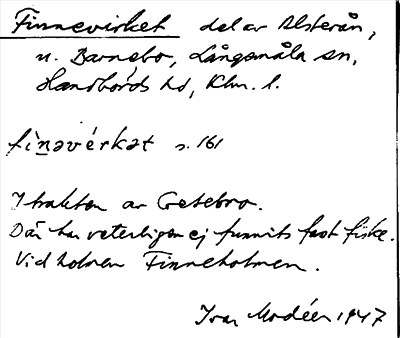 Finnevirket del av Alsterån,
n. Barnebo, Långemåla sn,
Handbörds hd, Klm. l.
fìnəvérkət s. 161
I trakten av Getebro.
Där har veterligen ej funnits fast fiske.
Vid holmen Finneholmen.
Ivar Modéer 1947